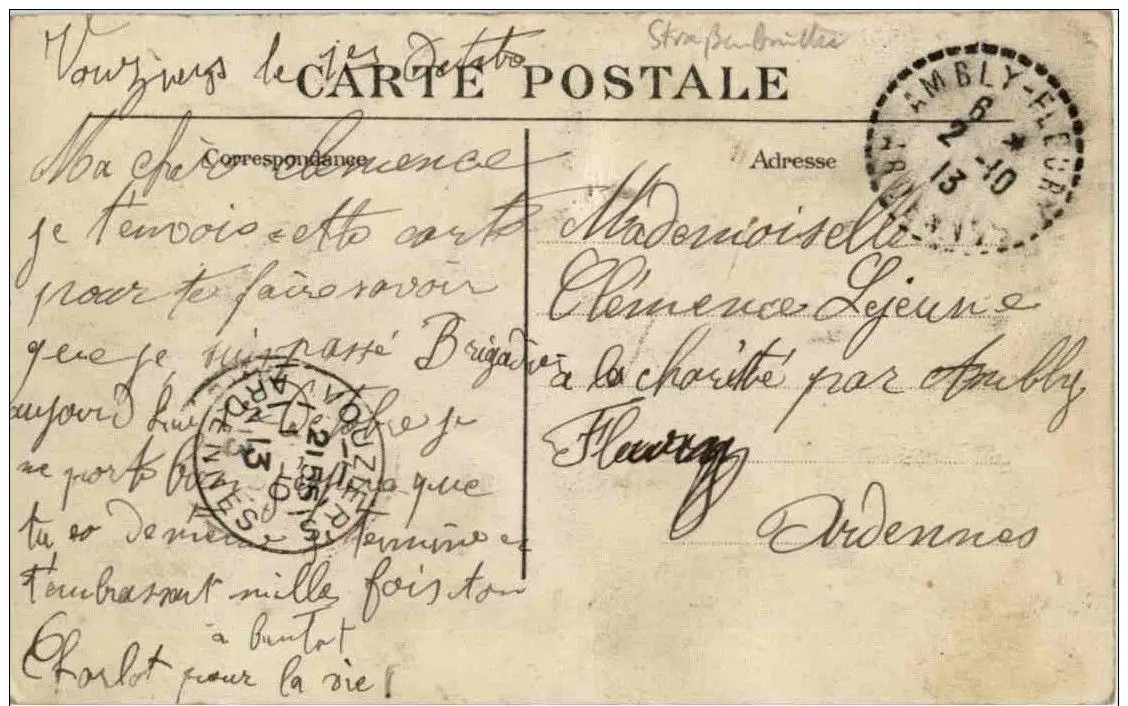 Vouziers le 1er Octobre
Straßenbrücke
CARTE POSTALE
Correspondance
Ma chère Clemence
je t'envois cette carte
pour te faire savoir
que je suis passé Brigadier
aujourd'hui 1er Octobre je
me porte bien j'espère que
tu es de même je termine en
t'embrassant mille fois ton
à bientot
Charlot pour la vie !
Adresse
Mademoiselle
Clémence Lejeune
a la charité par Ambly
Fleury
Ardennes
AMBLY-FLEURY
6 *
2 -10
13
ARDENNES
VOUZIERS
21 55
1 -10
13
ARDENNES